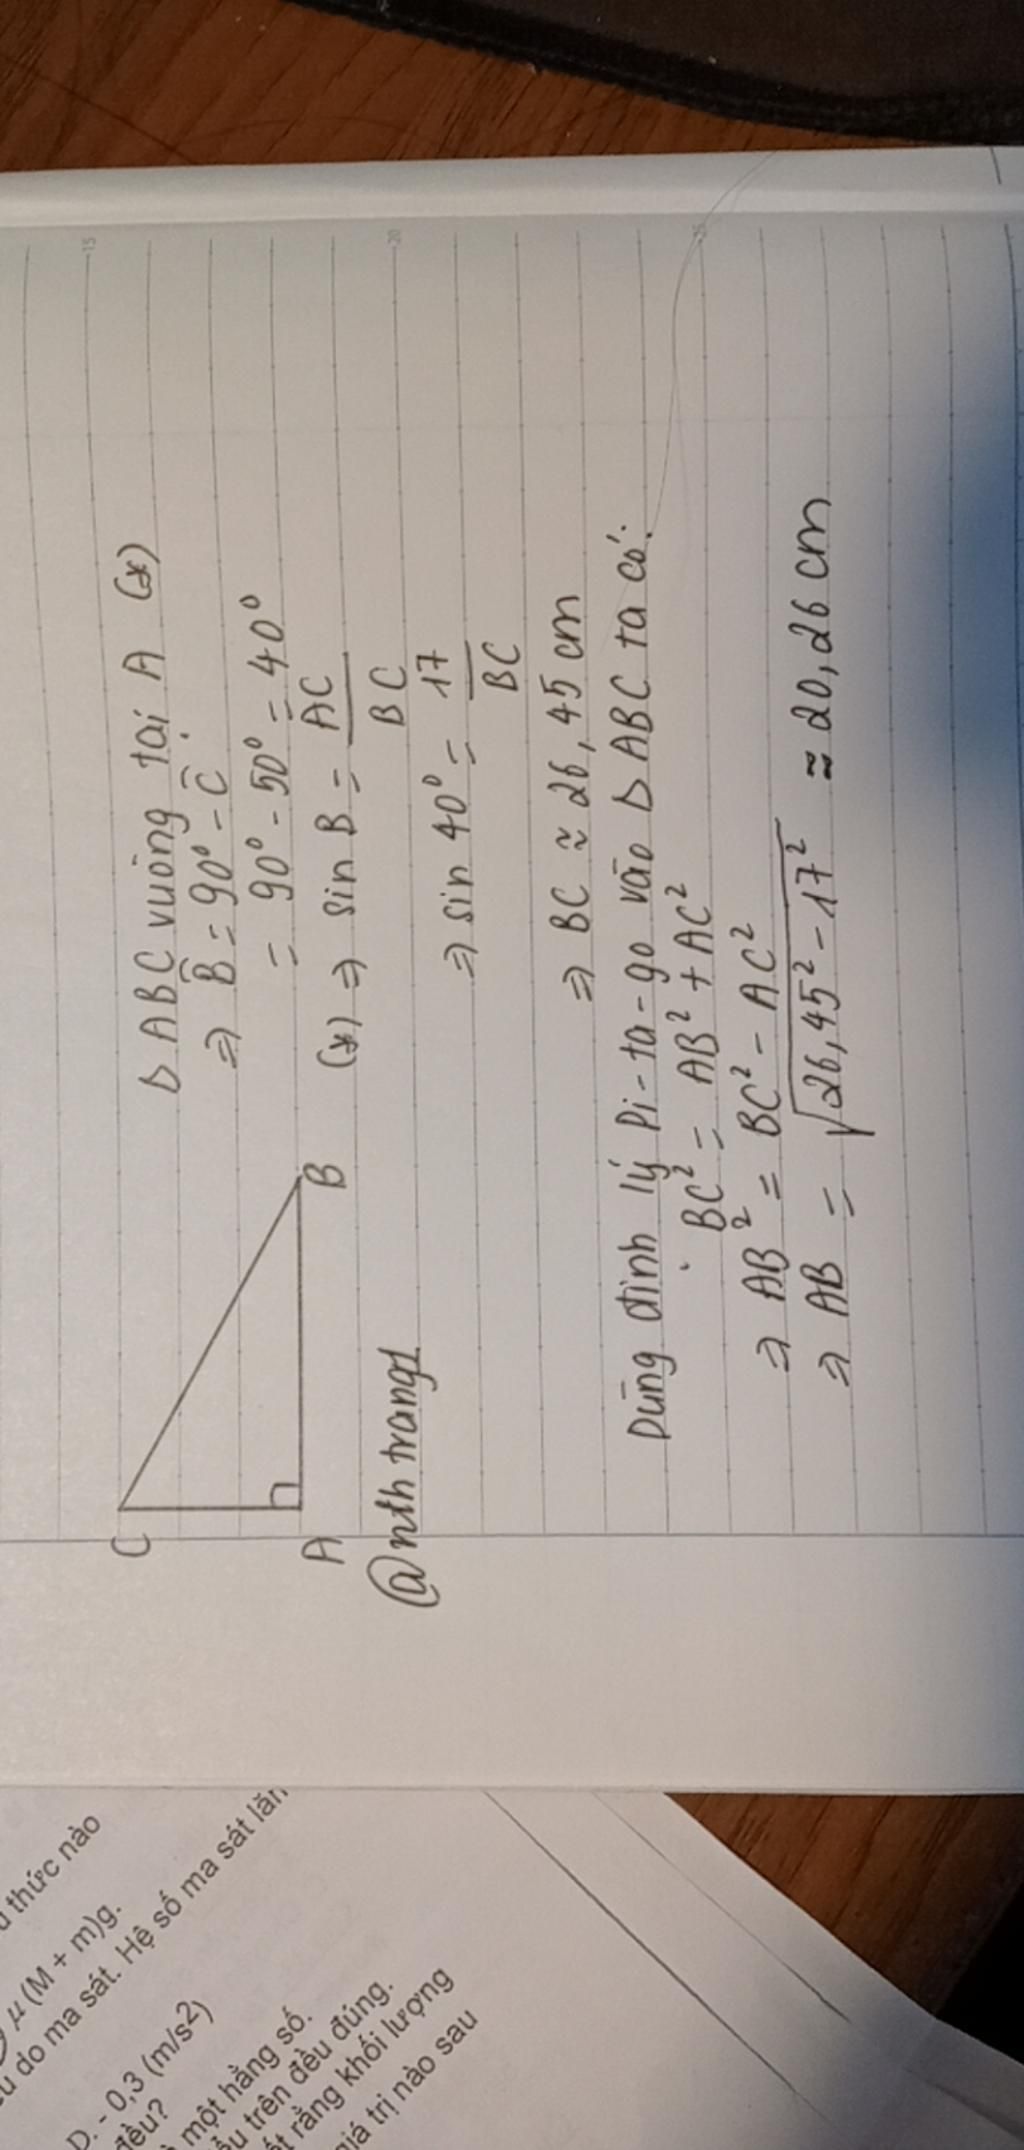 C
A
B
@nthtrang1
Δ ABC vuông tại A (*)
⇒ B̂ = 90° - Ĉ
= 90° - 50° = 40°
(*) ⇒ sin B = AC/BC
⇒ sin 40° = 17/BC
⇒ BC ≈ 26,45 cm
Dùng định lý Pi-ta-go vào Δ ABC ta có:
BC² = AB² + AC²
⇒ AB² = BC² - AC²
⇒ AB = √26,45² - 17² ≈ 20,26 cm
15
20
25
thức nào
μ(M + m)g.
do ma sát. Hệ số ma sát lăn
D. - 0,3 (m/s2)
đều?
một hằng số.
trên đều đúng.
rằng khối lượng
giá trị nào sau